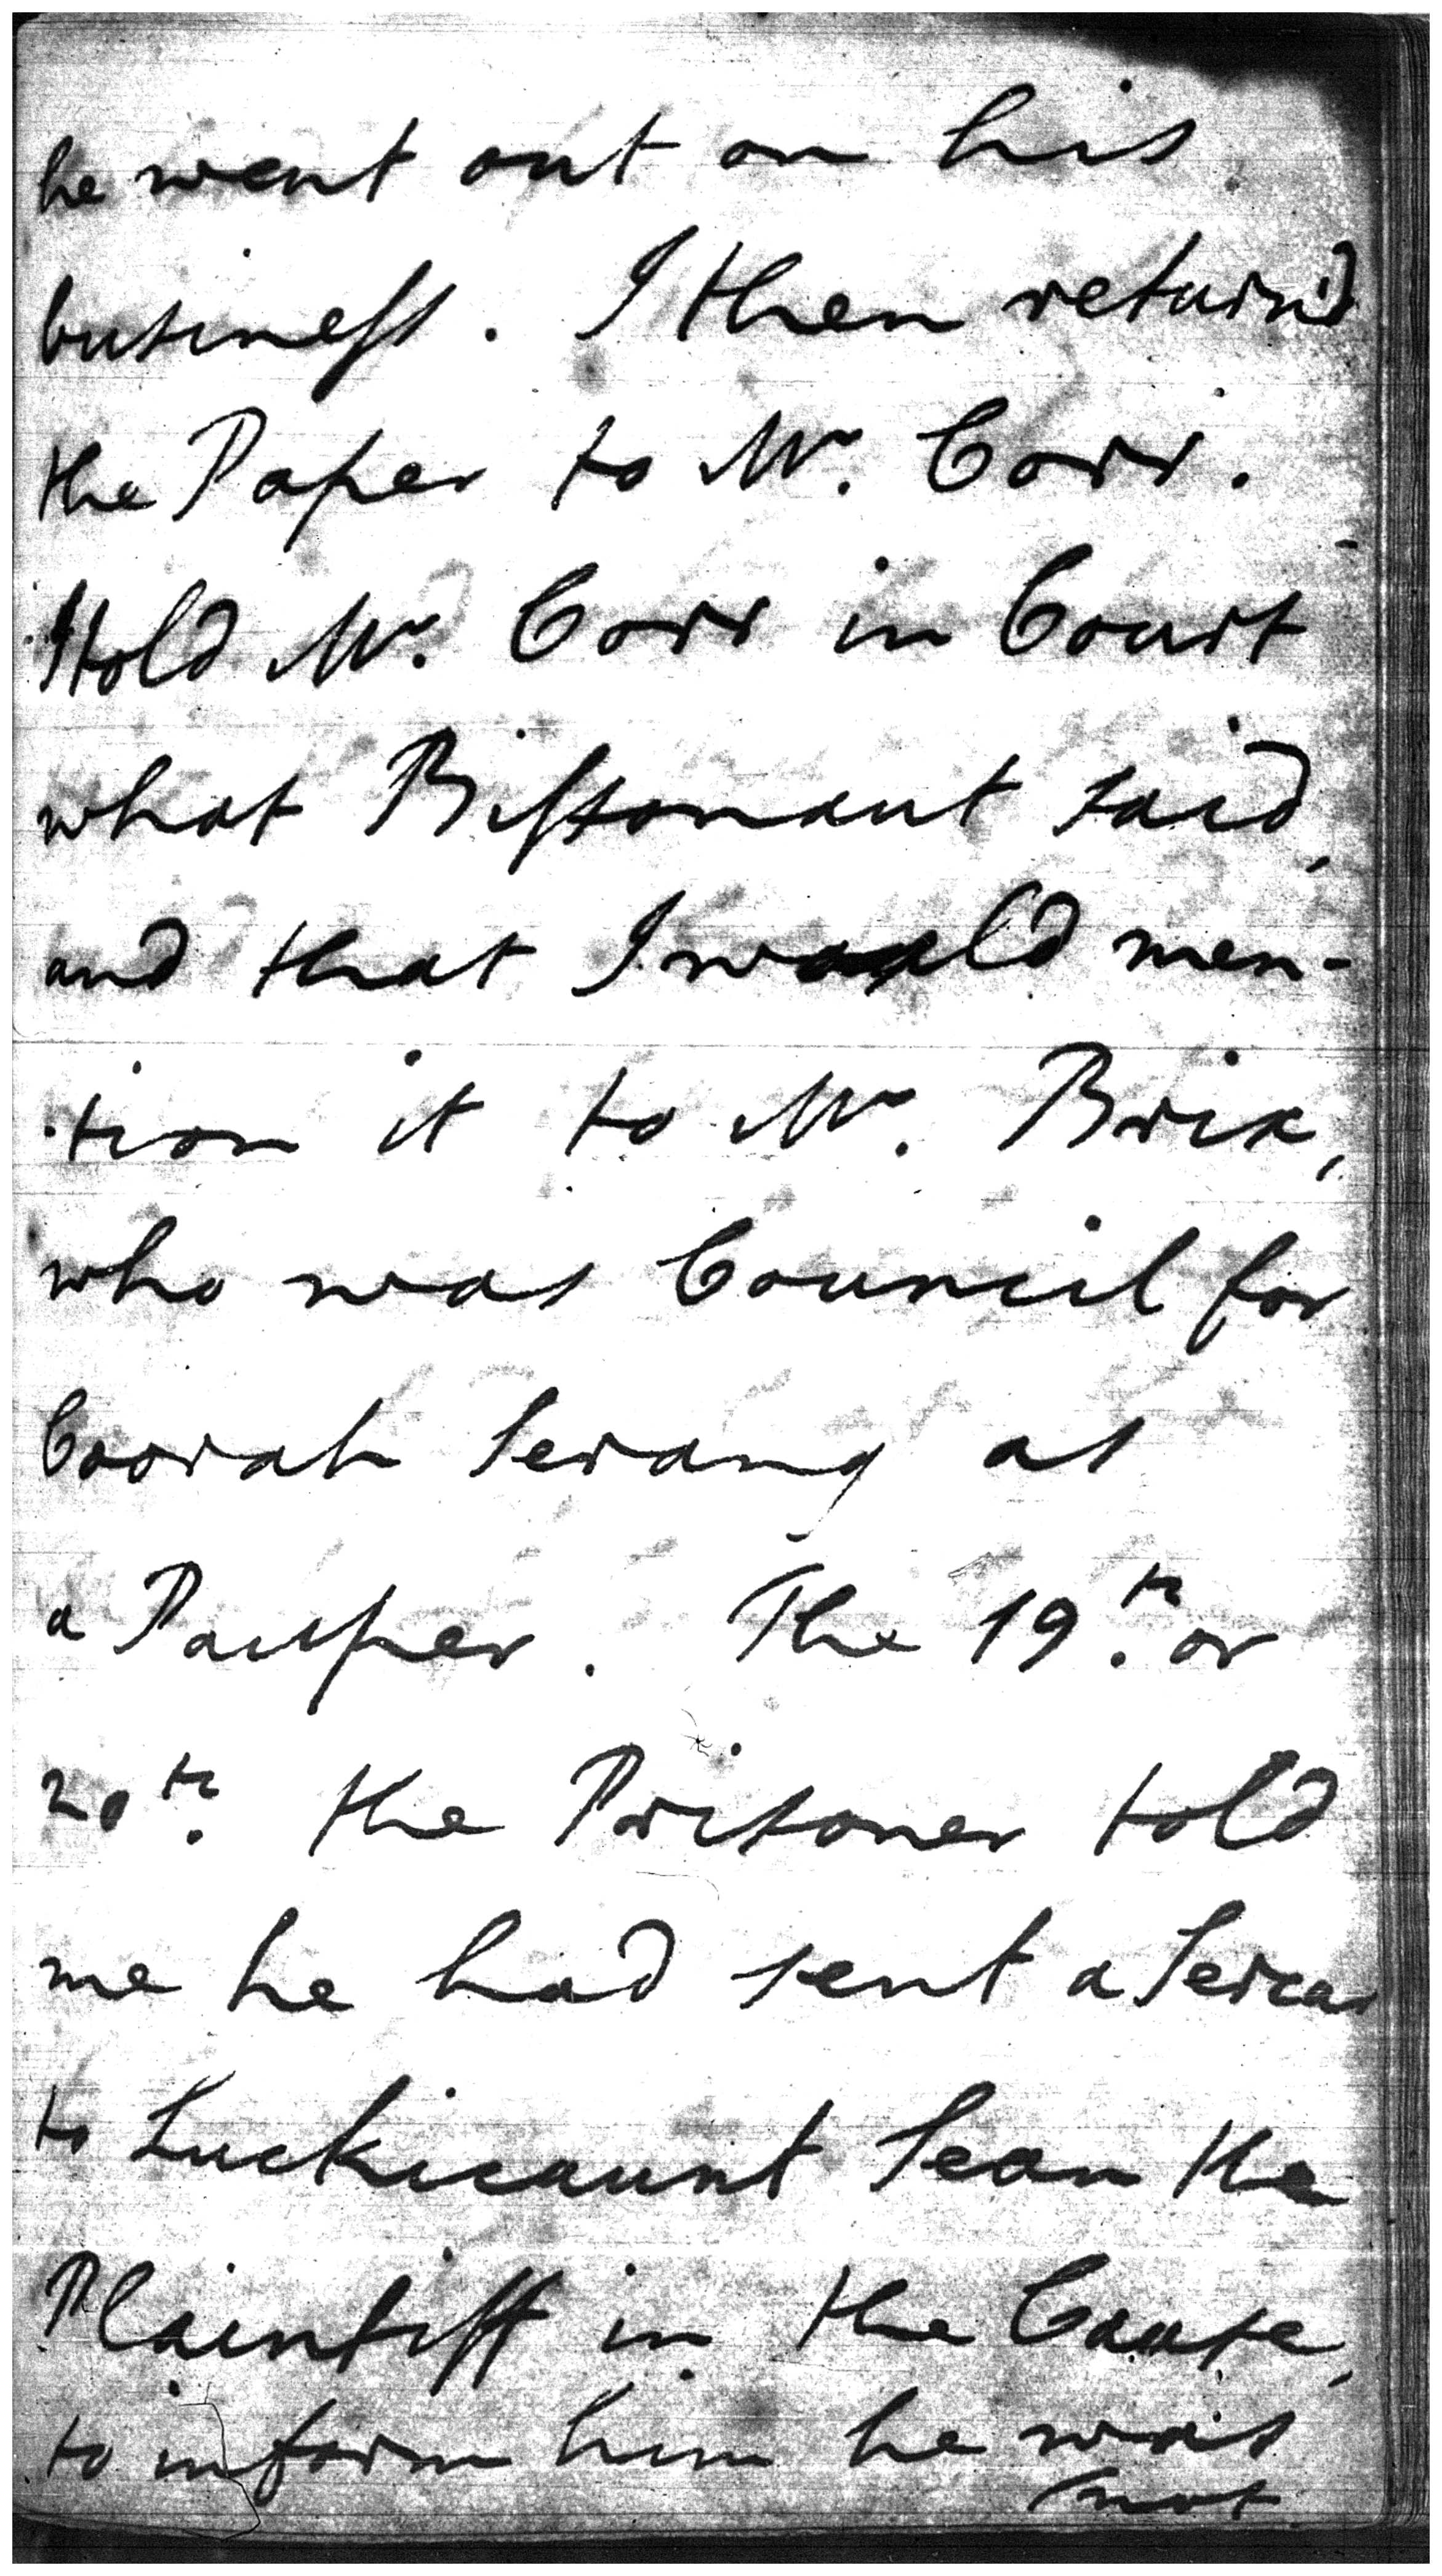 he went out on his
business. I then return'd
the Paper to Mr. Corr.
I told Mr. Corr in Court
what Bissonaut said,
and that I would men-
tion it to Mr. Brix,
who was Council for
Coorah Serang as
a Pauper. The 19th. or
20th. the Prisoner told
me he had sent a Sercar
to Luckicaunt Sean the
Plaintiff in the Cause,
to inform him he was
not